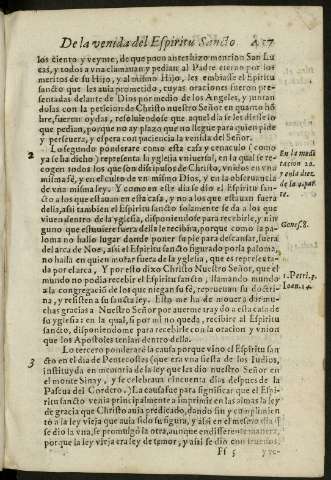 De la venida del Espiritu Sancto. 457
los ciento y veynte, de que poco antes hizo mention San Lu
cas, y todos a vna clamauan y pedian al Padre eterno por los
meritos de su Hijo, y al mismo Hijo, les embiasse el Spiritu
sancto que les auia prometido, cuyas oraciones fueron pre-
sentadas delante de Dios por medio de los Angeles, y juntan
dolas con la peticion de Christo nuestro Señor en quanto hõ
bre, fueron oydas, resoluiendose que aquel dia se les diesse lo
que pedian, porque no ay plazo que no llegue para quien pide
y perseuera, y espera con paciencia la venida del Señor.
2 Lo segundo ponderare como esta casa y cenaculo (como
ya se ha dicho) representa la yglesia vniuersal, en la qual se re-
cogen todos los que son discipulos de Christo, vnidos en vna
misma fê, y en el culto de vn mismo Dios, y en la obseruancia
de vna misma ley. Y como en este dia se dio el Espiritu san-
cto a los que estauan en esta casa, y no a los que estauan fuera
della, assi tambien el Spiritu sancto solamente se da a los que
viuen dentro de la yglesia, disponiendose para recebirle, y nin
guno que estuuiere fuera della le recibira, porque como la pa-
loma no hallo lugar donde poner su pie para descansar, fuera
del arca de Noe, assi el Espiritu sancto figurado por la paloma,
no halla en quien morar fuera de la yglesia, que es represen-
tada por el arca, Y por esto dixo Christo Nuestro Señor, que el
mundo no podia recebir el Espiritu sancto, llamando mundo
a la congregacion de los que niegan su fê, reprueuan su doctri
na, y resisten a su sancta ley. Esto me ha de mouer a dar mu-
chas gracias a Nuestro Señor por auerme traydo a esta casa de
su yglesia: en la qual, si por mi no queda, recibire al Espiritu
sancto, disponiendome para recebirle con la oracion y vnion
que los Apostoles tenian dentro della.
3 Lo tercero ponderarê la causa porque vino el Spiritu san-
cto en el dia de Pentecostes (que era vna fiesta de los Iudios,
instituyda en memoria de la ley que les dio nuestro Señor en
el monte Sinay, y se celebraua cincuenta dias despues de la
Pascua del Cordero.) La causa fue para significar que el Espi-
ritu sancto venia principalmente a imprimir en las almas la ley
de gracia que Christo auia predicado, dando fin y cumplimien
to a la ley vieja que auia sido su figura, y assi en el mesmo dia que
se dio la vna, se promulgò la otra, aunque en diferente manera,
porque la ley vieja era ley de temor, y assi se dio con truenos,
Ff 5 y re-
En la medi
tacion 22.
y en la diez
de la 4. par
te.
Genes. 8.
1. Petri. 3.
Ioan. 14.